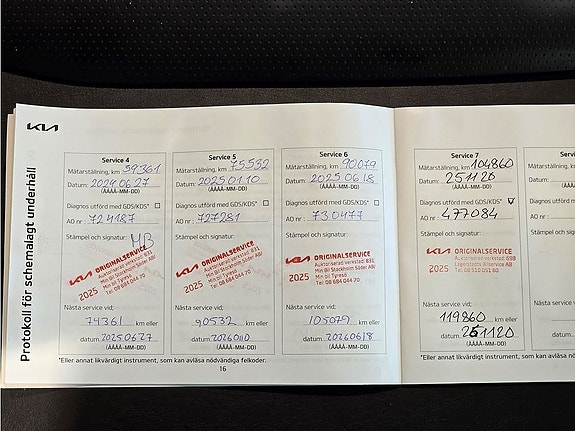 KIA
Protokoll för schemalagt underhåll
Service 4
Mätarställning, km 59361
Datum: 20240627
(ÅÅÅÅ-MM-DD)
Diagnos utförd med GDS/KDS*
AO nr: 724187
Stämpel och signatur:
MB
KIA ORIGINALSERVICE
Auktoriserad verkstad 831
Min Bil Stockholm Söder AB/
Min bil Tyresö
Tel 08 684 044 70
2025
Nästa service vid:
74361 km eller
datum 20250627
(ÅÅÅÅ-MM-DD)
Service 5
Mätarställning, km 75532
Datum: 20250110
(ÅÅÅÅ-MM-DD)
Diagnos utförd med GDS/KDS*
AO nr: 727281
Stämpel och signatur:
KIA ORIGINALSERVICE
Auktoriserad verkstad 831,
Min Bil Stockholm Söder AB/
Min bil Tyresö
Tel 08 684 044 70
2025
Nästa service vid:
90532 km eller
datum 20260110
(ÅÅÅÅ-MM-DD)
Service 6
Mätarställning, km 90079
Datum: 20250618
(ÅÅÅÅ-MM-DD)
Diagnos utförd med GDS/KDS*
AO nr: 730477
Stämpel och signatur:
KIA ORIGINALSERVICE
Auktoriserad verkstad 831,
Min Bil Stockholm Söder AB/
Min bil Tyresö
Tel 08 684 044 70
2025
Nästa service vid:
105079 km eller
datum 20260618
(ÅÅÅÅ-MM-DD)
*Eller annat likvärdigt instrument, som kan avläsa nödvändiga felkoder.
16
Service 7
Mätarställning, km 104860
Datum: 251120
(ÅÅÅÅ-MM-DD)
Diagnos utförd med GDS/KDS*
AO nr: 477084
Stämpel och signatur:
KIA ORIGINALSERVICE
Auktoriserad verkstad 698
Lagerstens Bilservice AB
Tel 08 510 051 80
2025
Nästa service vid:
119860 km eller
datum 261120
(ÅÅÅÅ-MM-DD)
Servi
Mätarställning, km
Datum:
(ÅÅÅÅ-M
Diagnos utförd med
AO nr:
Stämpel och signatu
Nästa service vid:
datum
(ÅÅÅÅ-M
*Eller annat likvärdigt instrument, som kan avläsa nödvä